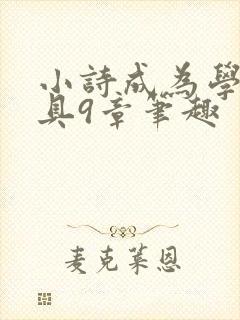 小詩成為學
具9章筆趣
麦克莱恩